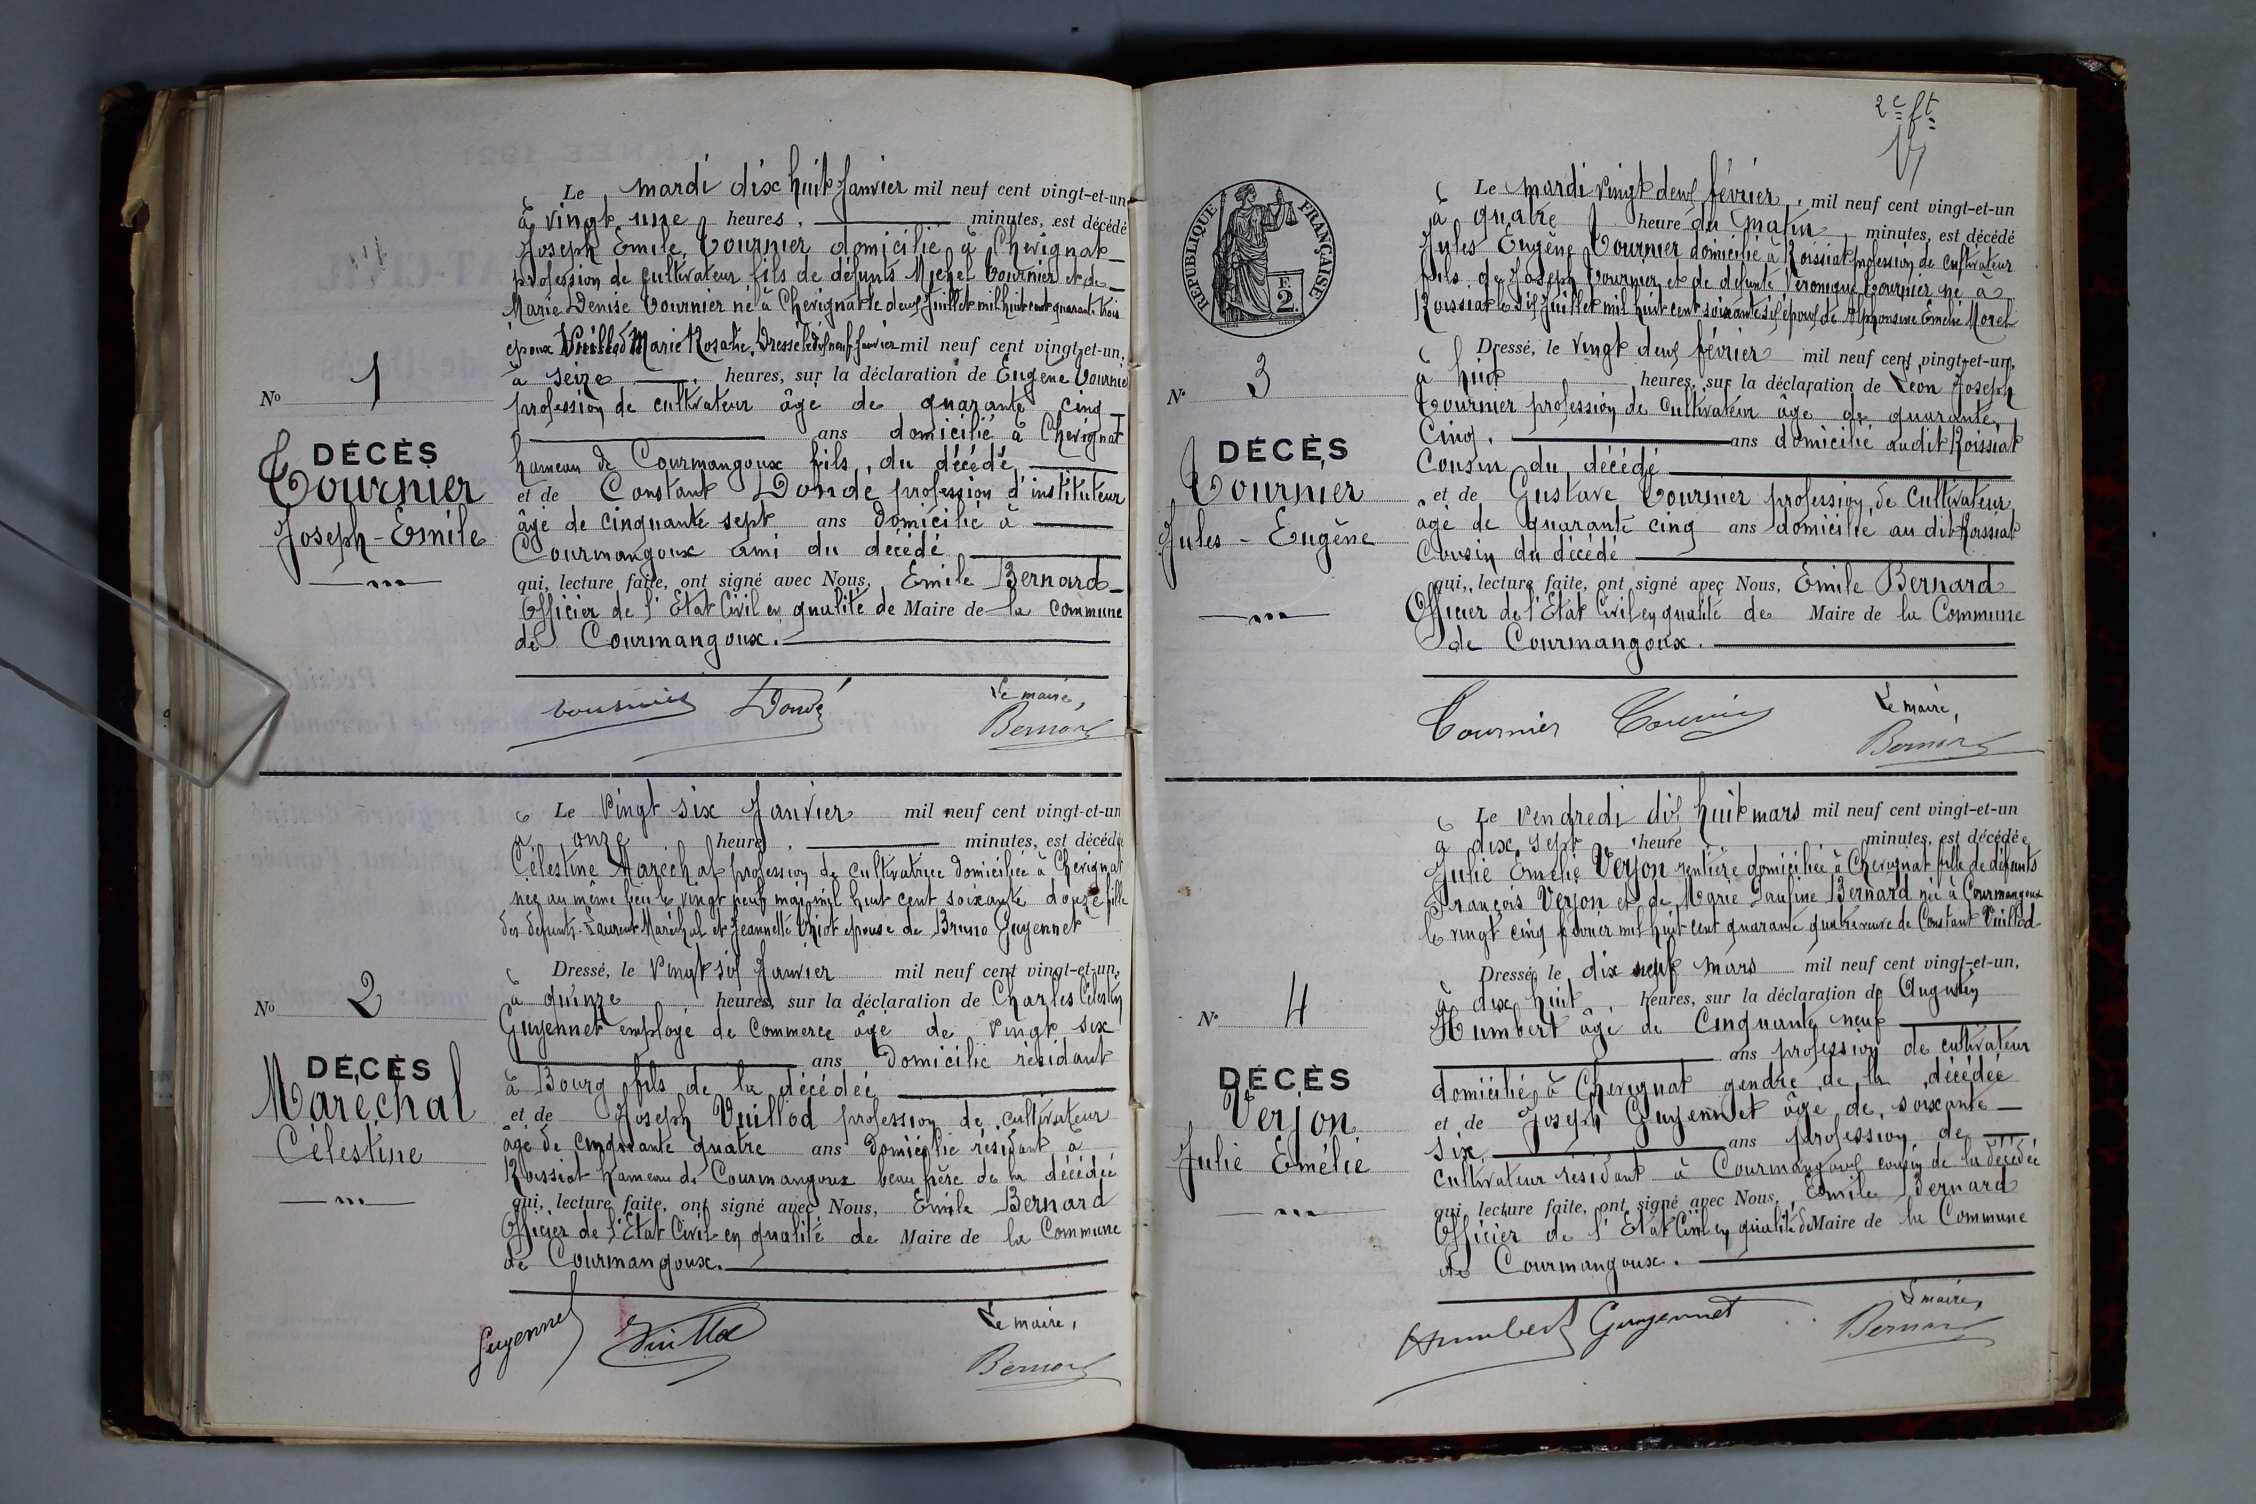 Le mardi dix huit Janvier mil neuf cent vingt-et-un
à vingt une heures, minutes, est décédé
Joseph Emile Tournier domicilié à Chevignat
profession de cultivateur fils de défunts Michel Tournier et de
Marie Denise Tournier né à Chevignat le deux Juillet mil huit cent quarante trois
époux Vuillod Marie Rosalie. Dressé le dix neuf Janvier mil neuf cent vingt-et-un,
à seize heures, sur la déclaration de Eugène Tournier
No 1
profession de cultivateur âgé de quarante cinq
ans domicilié à Chevignat
DÉCÈS
hameau de Courmangoux fils du décédé
Tournier
et de Constant Dondé profession d'instituteur
âgé de cinquante sept ans domicilié à
Joseph-Emile
Courmangoux ami du décédé
qui, lecture faite, ont signé avec Nous, Emile Bernard
Officier de l'Etat Civil en qualité de Maire de la commune
de Courmangoux.
Tournier Dondé Le maire,
Bernard
Le vingt six Janvier mil neuf cent vingt-et-un
à onze heures, minutes, est décédée
Célestine Maréchal profession de cultivatrice domiciliée à Chevignat
née au même lieu le vingt neuf mai mil huit cent soixante douze fille
des défunts Laurent Maréchal et Jeannette épouse de Bruno Guyennet
Dressé, le vingt six Janvier mil neuf cent vingt-et-un,
à quinze heures, sur la déclaration de Charles Célestin
No 2
Guyennet employé de commerce âgé de vingt six
ans domicilié résidant
DÉCÈS
à Bourg fils de la décédée
Maréchal
et de Joseph Vuillod profession de cultivateur
Célestine
âgé de cinquante quatre ans domicilié résidant à
Roissiat hameau de Courmangoux beau frère de la décédée
qui, lecture faite, ont signé avec Nous, Emile Bernard
Officier de l'Etat Civil en qualité de Maire de la Commune
de Courmangoux.
Guyennet Vuillod Le maire,
Bernard
2e ft
RÉPUBLIQUE FRANÇAISE
F.
2.
Le mardi vingt deux février, mil neuf cent vingt-et-un
à quatre heure du matin, minutes, est décédé
Jules Eugène Tournier domicilié à Roissiat profession de cultivateur
fils de Joseph Tournier et de défunte Véronique Tournier né à
Roissiat le dix Juillet mil huit cent soixante six époux de Alphonsine Emélie Morel
Dressé, le vingt deux février mil neuf cent vingt-et-un,
à huit heures, sur la déclaration de Léon Joseph
No 3
Tournier profession de cultivateur âgé de quarante
Cinq. ans domicilié audit Roissiat
DÉCÈS
Cousin du décédé
Tournier
et de Gustave Tournier profession de cultivateur
âgé de quarante cinq ans domicilié au dit Roissiat
Jules - Eugène
Cousin du décédé
qui, lecture faite, ont signé avec Nous, Emile Bernard
Officier de l'Etat Civil en qualité de Maire de la Commune
de Courmangoux.
Tournier Tournier Le maire,
Bernard
Le vendredi dix huit mars mil neuf cent vingt-et-un
à dix sept heure minutes, est décédée
Julie Emélie Verjon rentière domiciliée à Chevignat fille de défunts
François Verjon et de Marie Pauline Bernard née à Courmangoux
le vingt cinq février mil huit cent quarante quatre veuve de Constant Vuillod
Dressé, le dix neuf mars mil neuf cent vingt-et-un,
à dix huit, heures, sur la déclaration de Augustin
No 4
Humbert âgé de cinquante neuf
ans profession de cultivateur
DÉCÈS
domicilié à Chevignat gendre de la décédée
Verjon
et de Joseph Guyennet âgé de soixante
Julie Emélie
six ans profession de
cultivateur résidant à Courmangoux cousin de la décédée
qui, lecture faite, ont signé avec Nous, Emile Bernard
Officier de l'Etat Civil en qualité de Maire de la Commune
de Courmangoux.
Humbert Guyennet Le maire,
Bernard